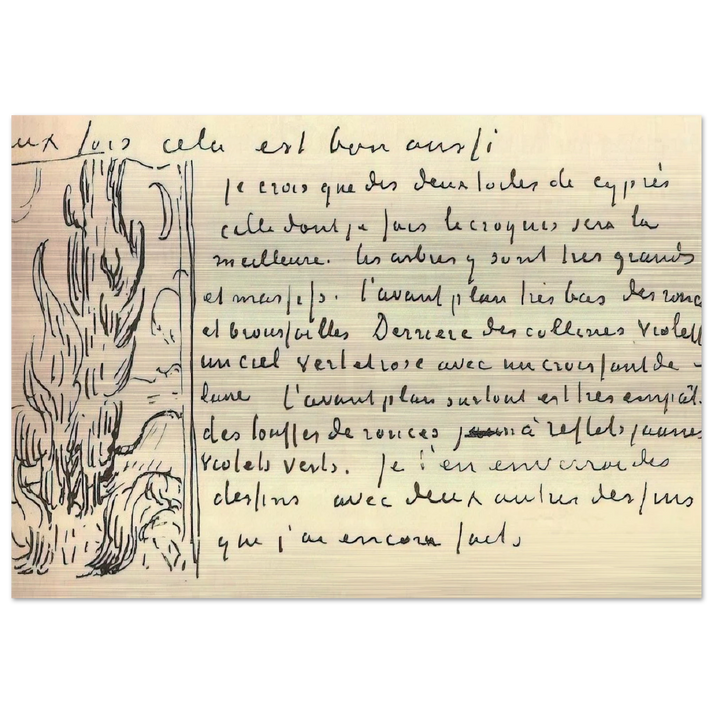 eux fois cela est bon aussi
je crois que des deux toiles de cyprès
celle dont je fais le croquis sera la
meilleure. les arbres y sont très grands
et massifs. l'avant plan très bas des ronc
et broussailles Derriere des collines violett
un ciel vert et rose avec un croissant de
lune l'avant plan surtout est très empât.
des touffes de ronces à reflets jaunes
violets verts. je t'en enverrai des
dessins avec deux autres dessins
que j'ai encore faits